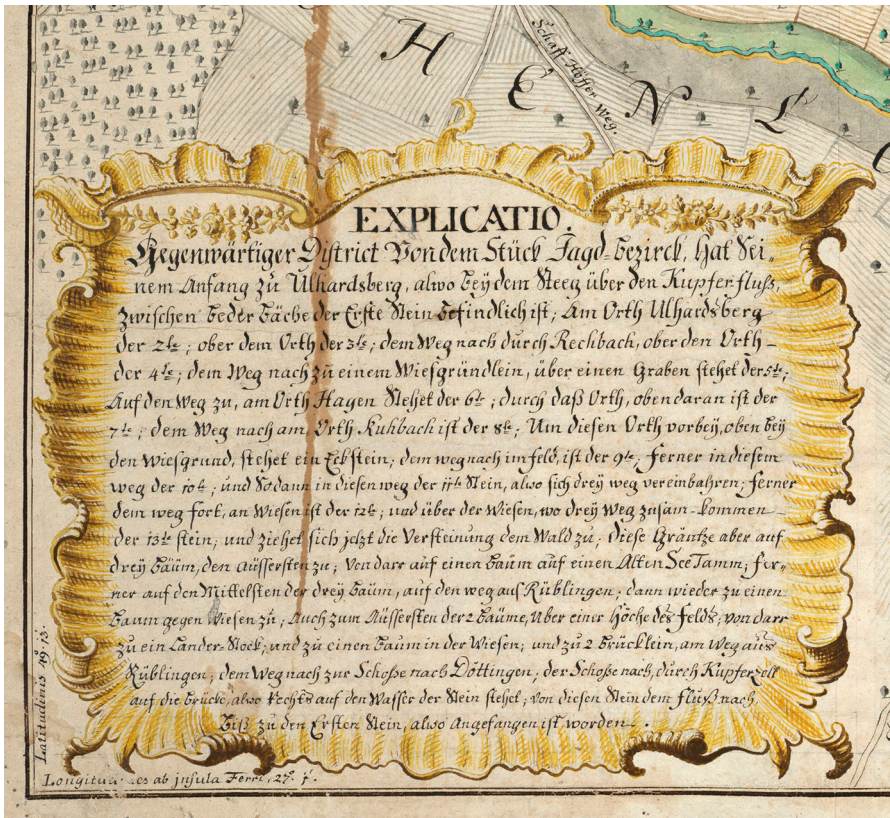 H
E
N
L
Schaff-Höffer Weg.
EXPLICATIO.
Gegenwärtiger District Von dem Stück Jagd-bezirck, Hat Sei„
nem Anfang zu Ulhardsberg, alwo beÿ dem Steeg über den Kupferfluß,
zwischen beder bäche der Erste Stein befindlich ist; Am Orth Ulhardsberg
der 2te; ober dem Orth der 3te; dem Weg nach durch Rechbach, ober den Orth-
der 4te; dem Weg nach zu einem Wiesgründlein, über einen Graben stehet der 5te;
Auf den Weg zu, am Orth Hagen Stehet der 6te; durch daß Orth, oben daran ist der
7te; dem Weg nach am Orth Kuhbach ist der 8te; Um diesen Orth vorbeÿ, oben beÿ
den Wiesgrund, stehet ein Eckstein; dem weg nach im feld, ist der 9te; ferner in diesem
weg der 10te; und Sodann in diesen weg der 11te Stein, alwo sich dreÿ weg vereinbahren; ferner
dem weg fort, an Wiesen ist der 12te; und über der Wiesen, wo dreÿ Weg zusam-kommen-
der 13te stein; und ziehet sich jetzt die Versteinung dem Wald zu; diese Gräntze aber auf
dreÿ bäüm, den äüssersten zu; Von dar auf einen baüm auf einen Alten See Tamm; fer„
ner auf den Mittelsten der dreÿ baüm, auf den weg aus Rüblingen; dann wieder zu einen
baum gegen Wiesen zu; Auch zum Aüssersten der 2 baüme, Über einer Höche des felds; von dar
zu ein Lander-Stock; und zu einen baum in der Wiesen; und zu 2 brücklein, am Weg aus
Rüblingen; dem Weg nach zur Schoße nach Döttingen; der Schoße nach, durch Kupferzell
auf die brücke, alwo Rechts auf den Wasser der Stein stehet; von diesen Stein dem fluß nach,
biß zu den Ersten Stein, alwo angefangen ist worden.
Latitudinis 49. 13.
Longitudines ab jnsula Ferri, 27. 1.